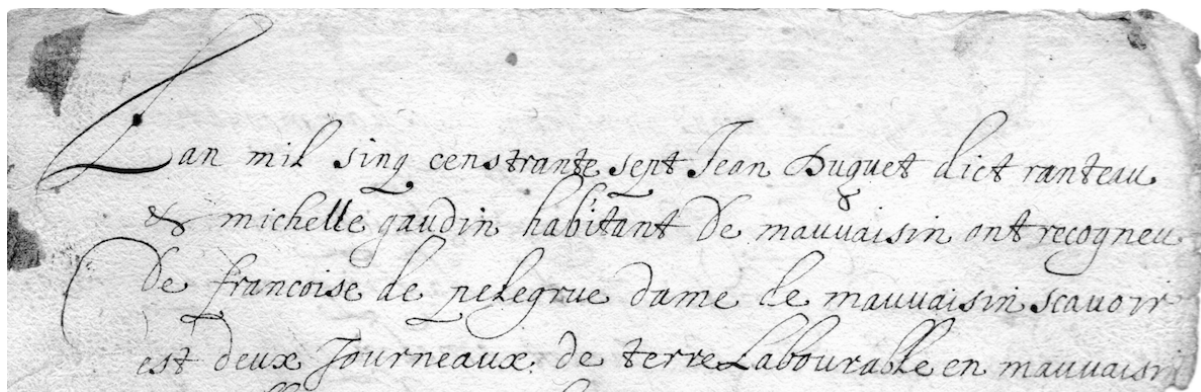 Lan mil sinq cens trante sept Jean Duguet dict ranteau
& michelle gaudin habitant De mauvaisin ont recogneu
De francoise de pelegrue dame de mauvaisin scavoir
est deux Journeaux de terre Labourable en mauvaisin